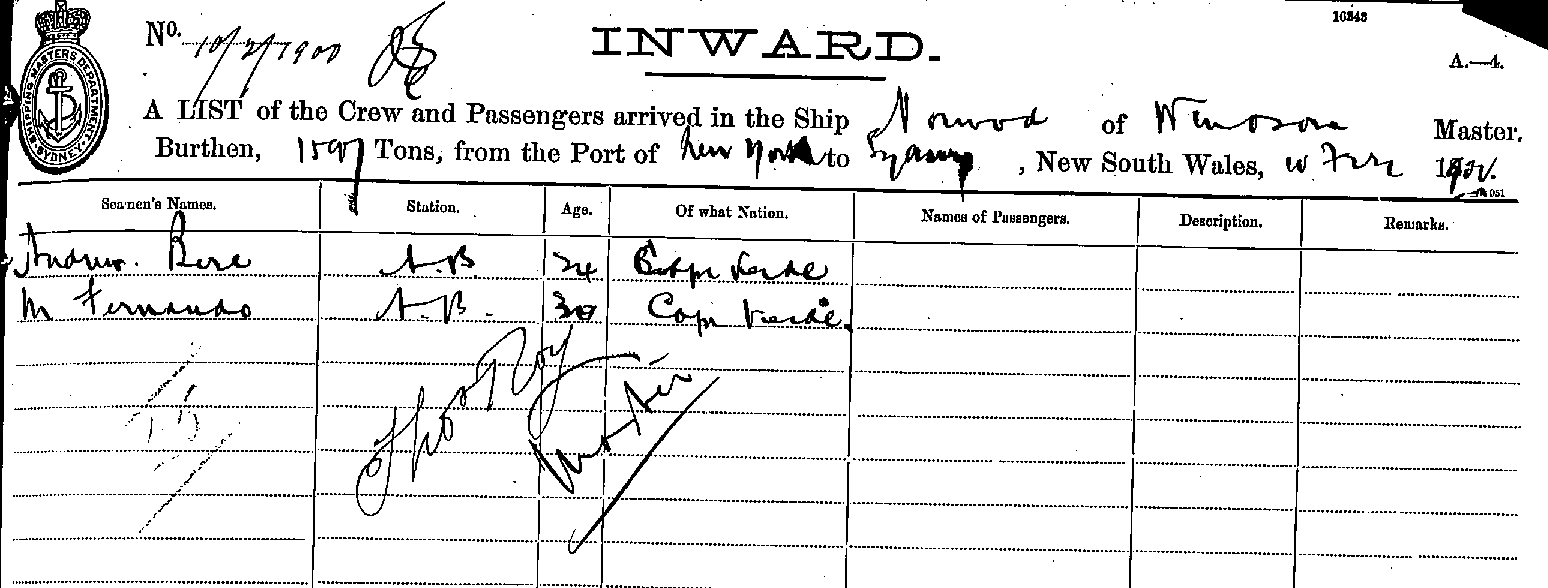 10343
No. 10/2/1900
INWARD.
A.—4.
SHIPPING MASTERS DEPARTMENT SYDNEY
A LIST of the Crew and Passengers arrived in the Ship Norwood of Windsor Master,
Burthen, 1597 Tons, from the Port of New York to Sydney, New South Wales,
Seamen's Names. Station. Age. Of what Nation. Names of Passengers. Description. Remarks.
A.B. 24 Cape Verde
M Fernando A.B. 30 Cape Verde.
Thos Roy
Master